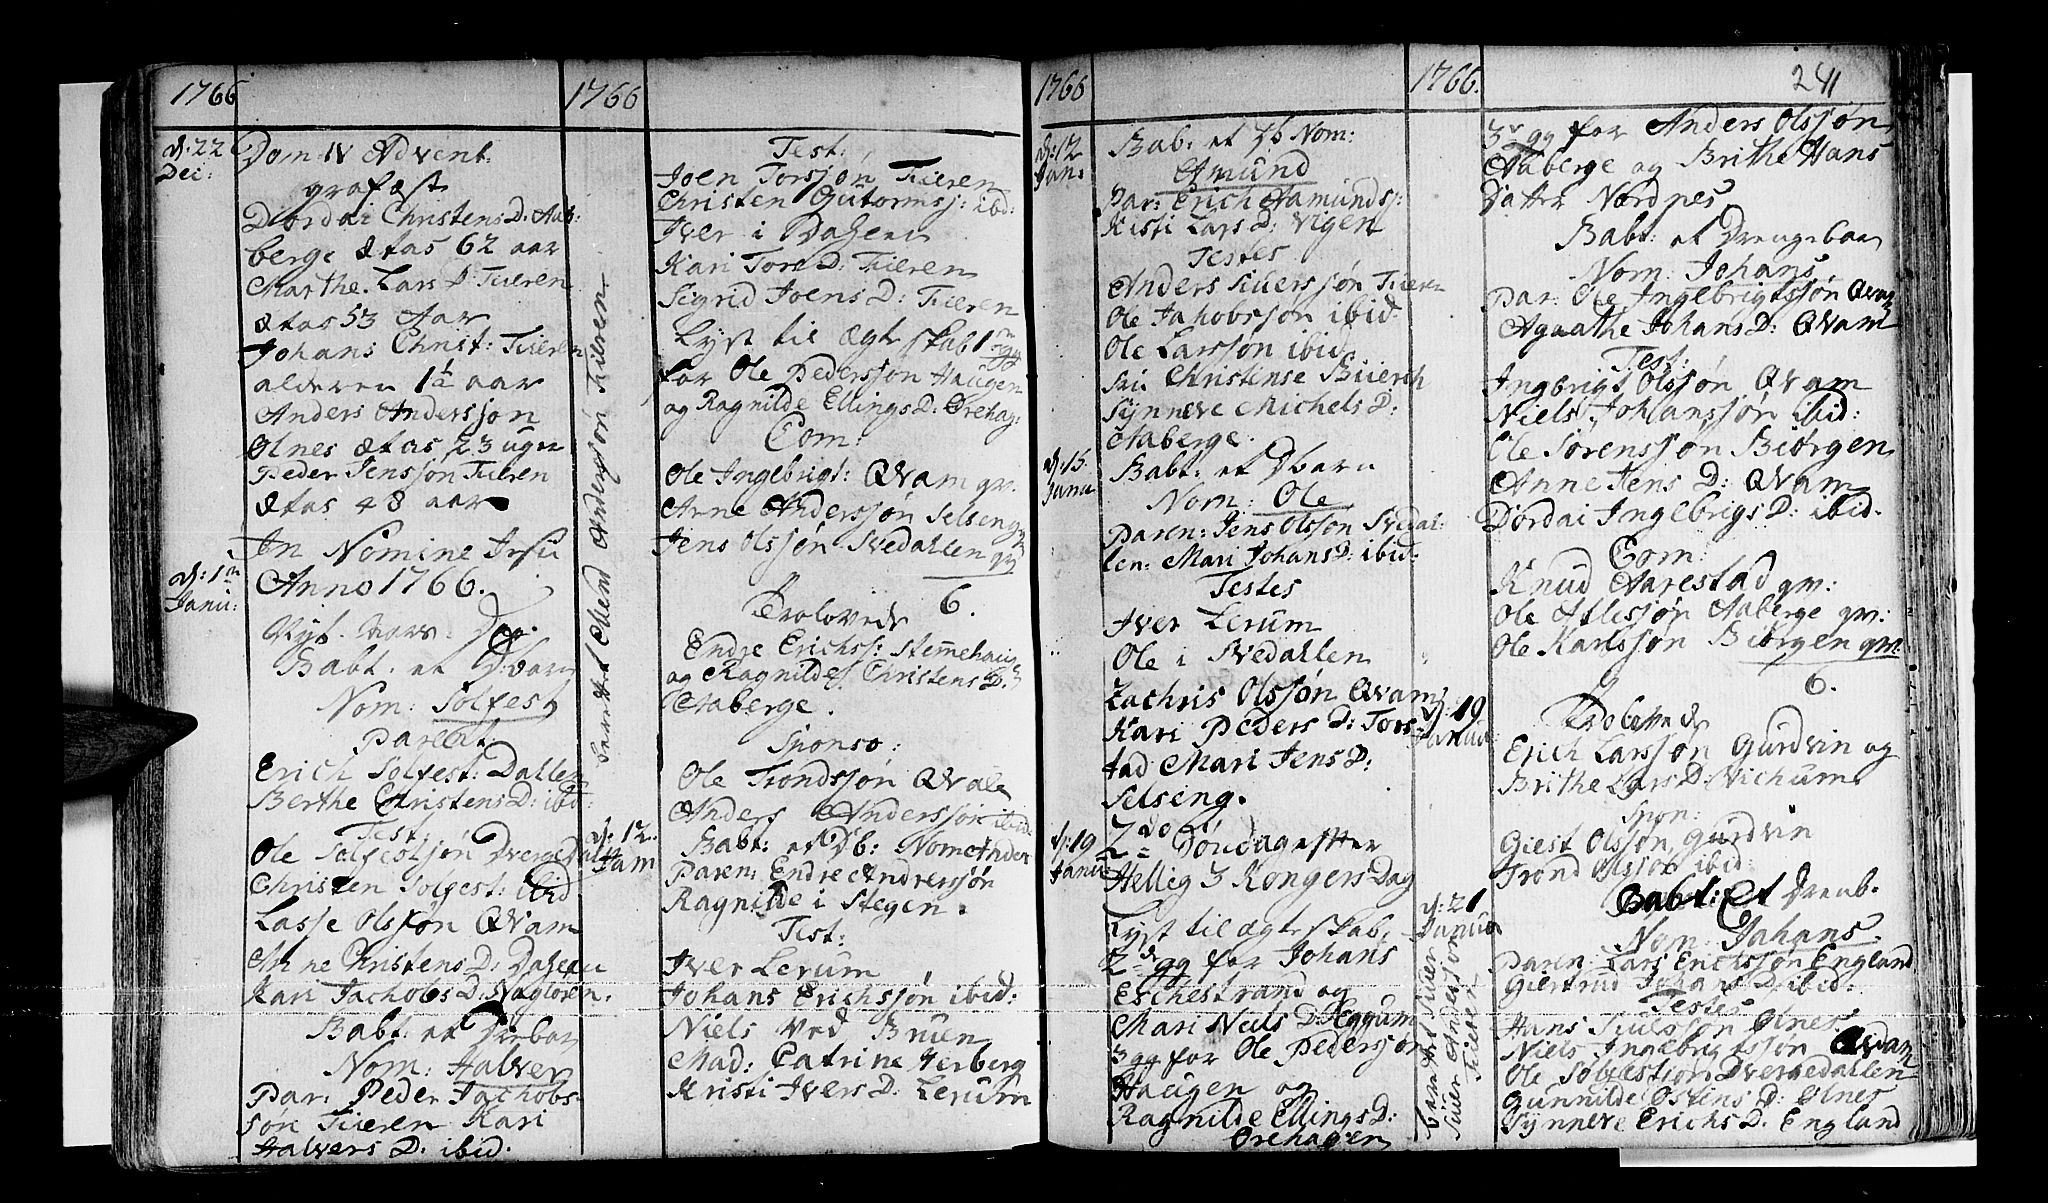 1766
d: 22
Dei:
Dom IV Advent:
grafæst
Dordai Christens D: Aab-
berge Ætas 62 aar
Marthe Lars D Tueren
Ætas 53 Aar
Johans Christ: Tueren
alderen 1½ aar
Anders Andersson
Olnes Ætas 23 uger
Peder Jensson Tueren
Ætas 48 aar
d: 1
Janu:
In Nomine Jesu
Anno 1766.
Nyt-Aars-Dag.
Babt. et Dbarn
Nom: Solfest
Parent:
Erich Solfest: Dahlen
Berthe Christens D: ibid:
Test:
Ole Solfestsøn Dvergedalen
Christen Solfest: ibid
Lasse Olssøn Qvam
Anne Christens D: Dahlen
Kari Jachobs D: Nagløren.
Babt: et Drebar
Nom: Halver
Par: Peder Jachobs-
søn Tueren Kari
Halvers D: ibid.
1766
Test:
Joen Torssøn Tueren
Christen Gutormss: ibid:
Iver i Dahlen
Kari Tore D: Tueren
Sigrid Joens D: Tueren
Lyst til Ægteskab 1 gg
for Ole Pederssøn Haugen
og Ragnilde Ellings D: Orehag:
Com:
Ole Ingebrigt: Qvam qv.
Arne Anderssøn Selseng
Jens Olssøn Svedahlen qv
6.
Trolovede
Endre Erichss: Stemmehaug
og Ragnilde Christens D:
Aaberge.
Sponso:
Ole Trondssøn Qvale
Anders Anderssøn ibid:
d: 12
Jam
Babt: et Db: Nom: Ander
Paren: Endre Anderssøn
Ragnilde i Stegen.
Test:
Iver Lerum
Johans Erichssøn ibid:
Niels ved Bruen
Mad: Catrine Herberg
Kristi Ivers D: Lerum
1766
d: 12
Janu
Bab: et Db Nom:
Amund
Par: Erich Aamunds:
Kisti Lars D: Vigen
Testes
Anders Siverssøn Tueren
Ole Jahobssøn ibid
Ole Larssøn ibid
Christense Buerch
Synneve Michels D:
Aaberge.
d: 15
Janu
Babt: et Dbarn
Nom: Ole
Paren: Jens Olsson Svedal-
len: Mari Johans D: ibid:
Testes
Iver Lerum
Ole i Svedahlen
Zachris Olssøn Qvam
Kari Peders D: Tors-
tad Mari Jens D:
Selseng.
d: 19
Janu:
2do Søndag efter
Hellig 3 Kongers Dag
Lyst til ægteskab
2 gg for Johans
Eschestrand og
Mari Niels D: Eggum
3 gg for Ole Pederssøn
Haugen og
Ragnilde Ellings D:
Orehagen
1766.
241
3 gg for Anders Olssøn
Aaberge og Brithe Hans
Datter Nordnes.
Babt: et Drengebarn
Nom: Johans
Par: Ole Ingebrigtssøn Qvam
Agaathe Johans D: Qvam
Test:
Ingbrigt Olssøn Qvam
Niels Johanssøn ibid:
Ole Sørenssøn Biørgen
Anne Jens D: Qvam
Dordai Ingebrigs D: ibid.
Com:
Knud Aarestad qv:
Ole Atlessøn Aaberge qv:
Ole Karlssøn Biørgen qv.
6.
d: 19
Janua
Trolovede
Erich Larssøn Gurdvin og
Brithe Lars D: Vichum
Spon:
Giest Olssøn Gurdvin
Trond Olssøn ibid:
d: 21
Janua
Babt: Et Drenb.
Nom: Johans.
Paren: Lars Erichssøn England
Giertrud Johans D: ibid:
Testes
Hans Olnes
Niels Ingebrigtssøn Qvam
Ole Solfestsøn Dvergedallen
Gunnilde Østens D: Olnes
Synneve Erichs D: England